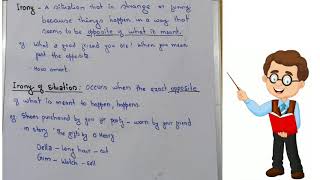 Irony - A situation that is strange or funny
because things happen in a way that
seems to be opposite of what is meant.
eg What a good friend you are! when you mean
just the opposite.
Irony of Situation: occurs when the exact opposite
of what is meant to happen, happens.
eg Shoes purchased by you for party - worn by your friend
in story 'The gifts by O Henry
Della - long hair - cut
Gim - Watch - sell